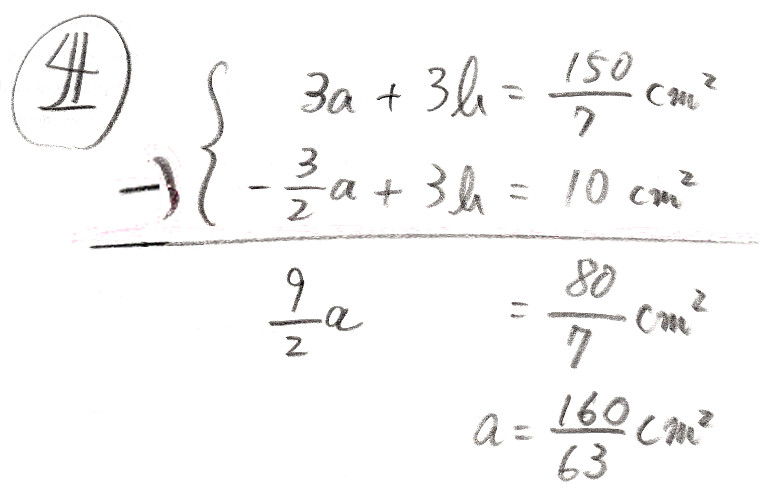 4 3a + 3b = 150/7 cm²
-) { -3/2 a + 3b = 10 cm²
9/2 a = 80/7 cm²
a = 160/63 cm²